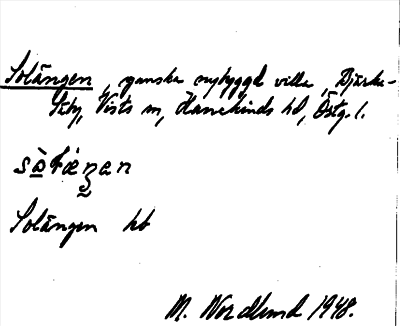 Solängen, ganska nybyggd villa, Bjärka-
Säby, Vists sn, Hanekinds hd, Östg. l.
Solängen hb
M. Nordlund 1948.